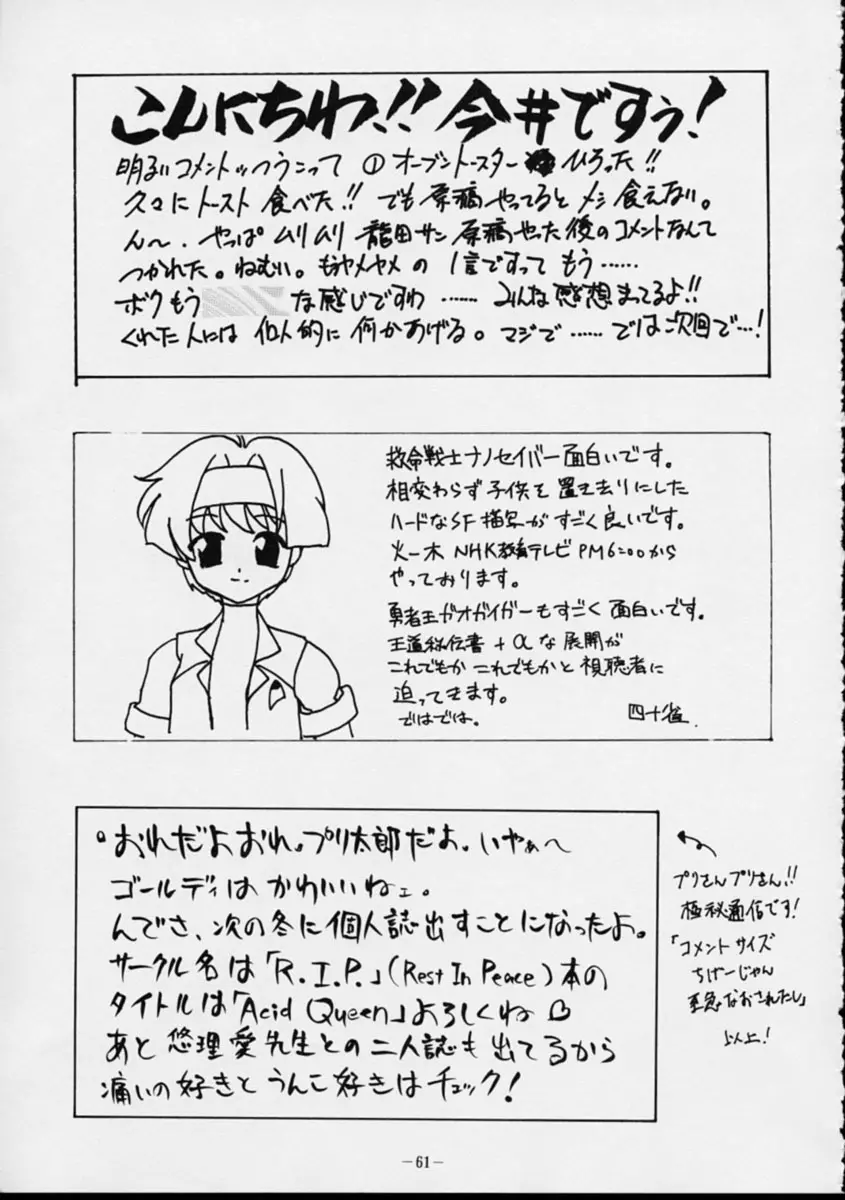 こんにちわ!! 今井ですぅ!
明るいコメントっつうこって ① オーブントースター ひろった!!
久々にトースト食べた!! でも原稿やってるとメシ食えない。
ん〜. やっぱムリムリ 龍田サン 原稿やった後のコメントなんて
つかれた。ねむい。もうヤメヤメの 1言ですって もう……
ボクもう な感じですわ …… みんな感想まってるよ!!
くれた人には 個人的に何かあげる。マジで …… では次回で…!
救命戦士ナノセイバー面白いです。
相変わらず子供を置き去りにした
ハードなSF描写がすごく良いです。
火〜木 NHK教育テレビ PM6:00から
やっております。
勇者王ガオガイガーもすごく面白いです。
王道秘伝書+αな展開が
これでもか これでもかと視聴者に
迫ってきます。
ではでは。
四十雀.
おれだよおれ。プリ太郎だよ。いやぁ〜
ゴールディはかわいいねェ。
んでさ、次の冬に個人誌出すことになったよ。
サークル名は「R.I.P.」(Rest In Peace) 本の
タイトルは「Acid Queen」よろしくね
あと悠理愛先生との二人誌も出てるから
痛いの好きとうんこ好きはチェック!
プリさんプリさん!!
極秘通信です!
「コメントサイズ
ちげーじゃん
至急なおされたし」
以上!
-61-